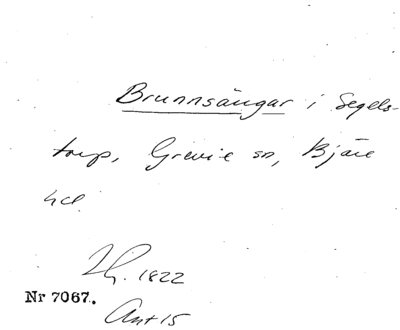 Brunnsängar i Segels-
torp, Grevie sn, Bjäre
hd.
1822
Nr 7067.
Ant 15